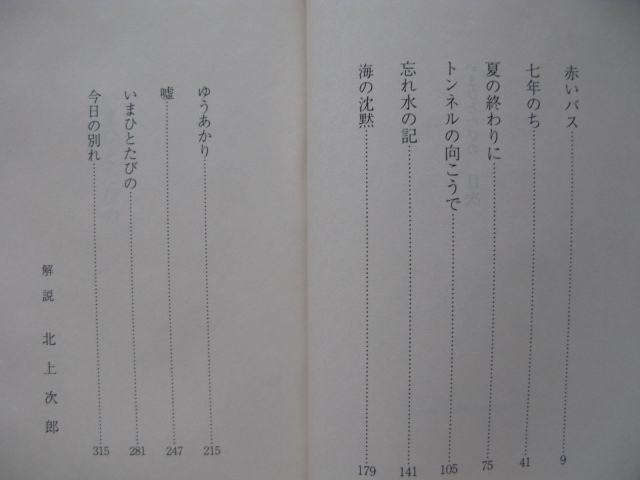 赤いバス……9
七年のち……41
夏の終わりに……75
トンネルの向こうで……105
忘れ水の記……141
海の沈黙……179
ゆうあかり……215
嘘……247
いまひとたびの……281
今日の別れ……315
解説 北上次郎